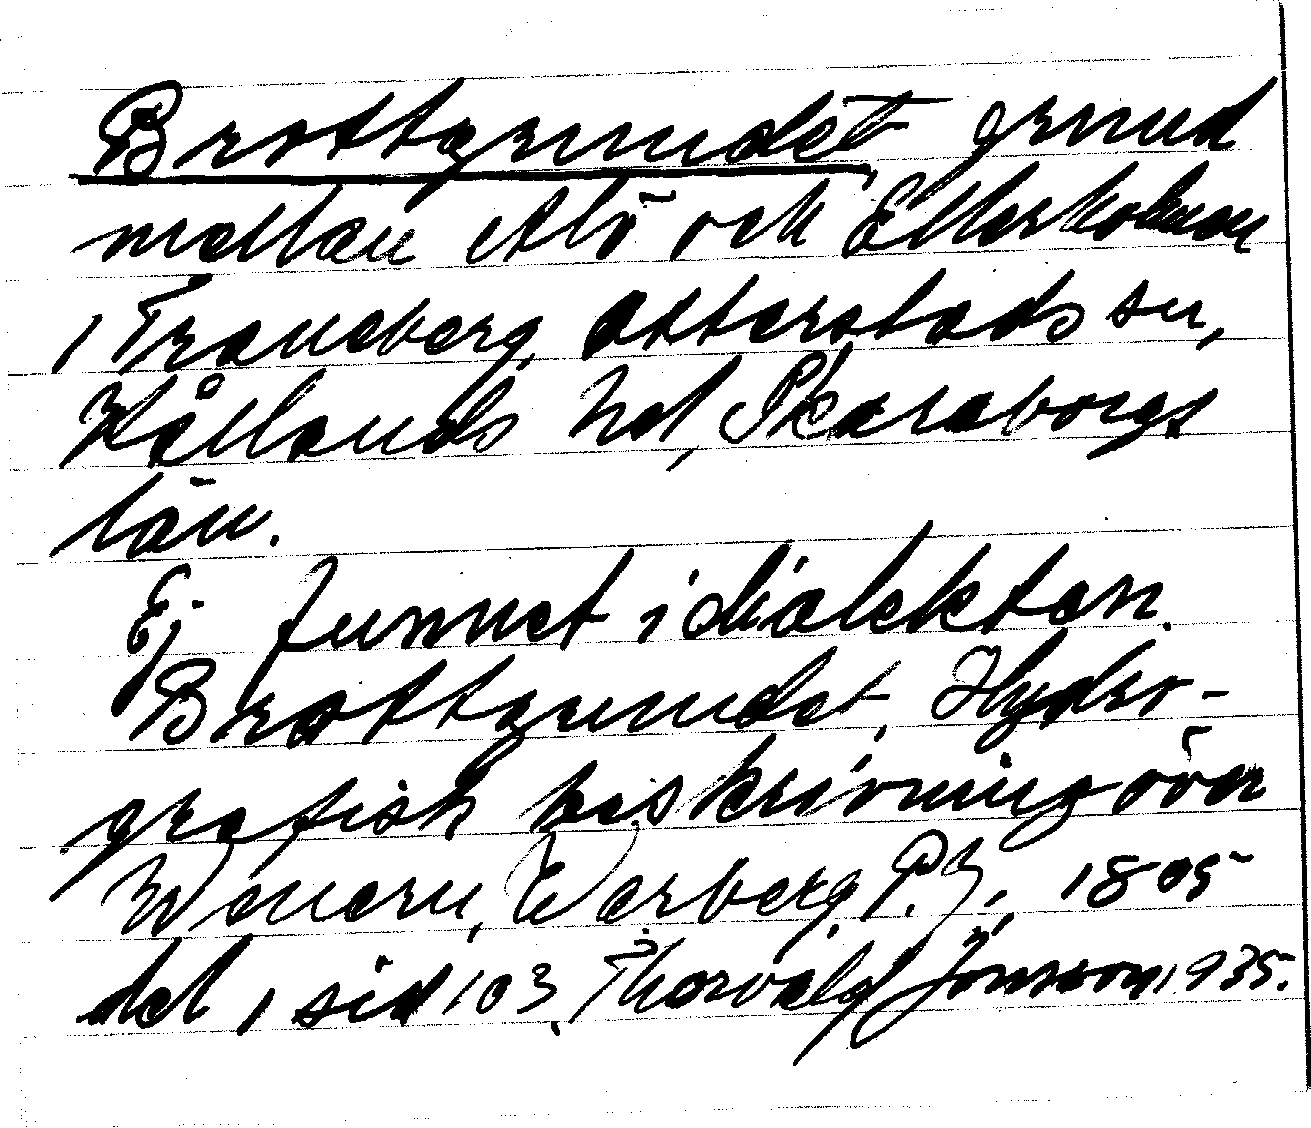 Brottgrundet, grund
mellan Alö och
i Traneberg, Otterstads sn,
Kållands hd, Skaraborgs
län.
Ej funnet i dialekten.
Brottgrundet, Hydro-
grafisk beskrivning över
Wenern, Warberg, P. Z., 1805
del 1 sid 103. Thorvald Jonsson 1935.